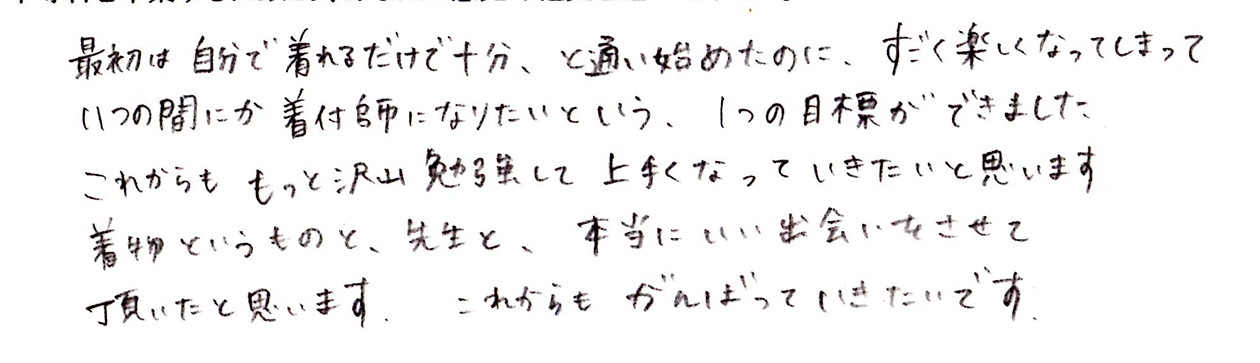 最初は 自分で着れるだけで十分、と通い始めたのに、すごく楽しくなってしまって
いつの間にか 着付師になりたいという、1つの目標ができました
これからも もっと沢山 勉強して 上手くなって いきたいと思います
着物というものと、先生と、本当にいい出会いをさせて
頂いたと思います. これからも がんばっていきたいです.